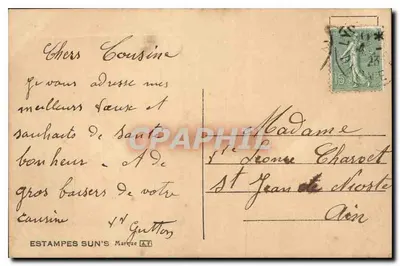 Chers Cousine
Je vous adresse mes
meilleurs vœux et
souhaits de santé
bonheur et de
gros baisers de votre
cousine
Gutton
Madame
Vve Leonie Charvet
St Jean de Nioste
Ain
ESTAMPES SUN'S Marque A.F
CPARAMA